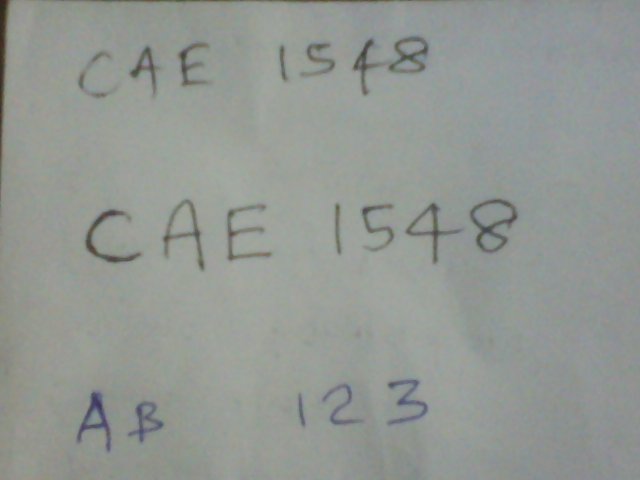 CAE 1548
CAE 1548
AB 123